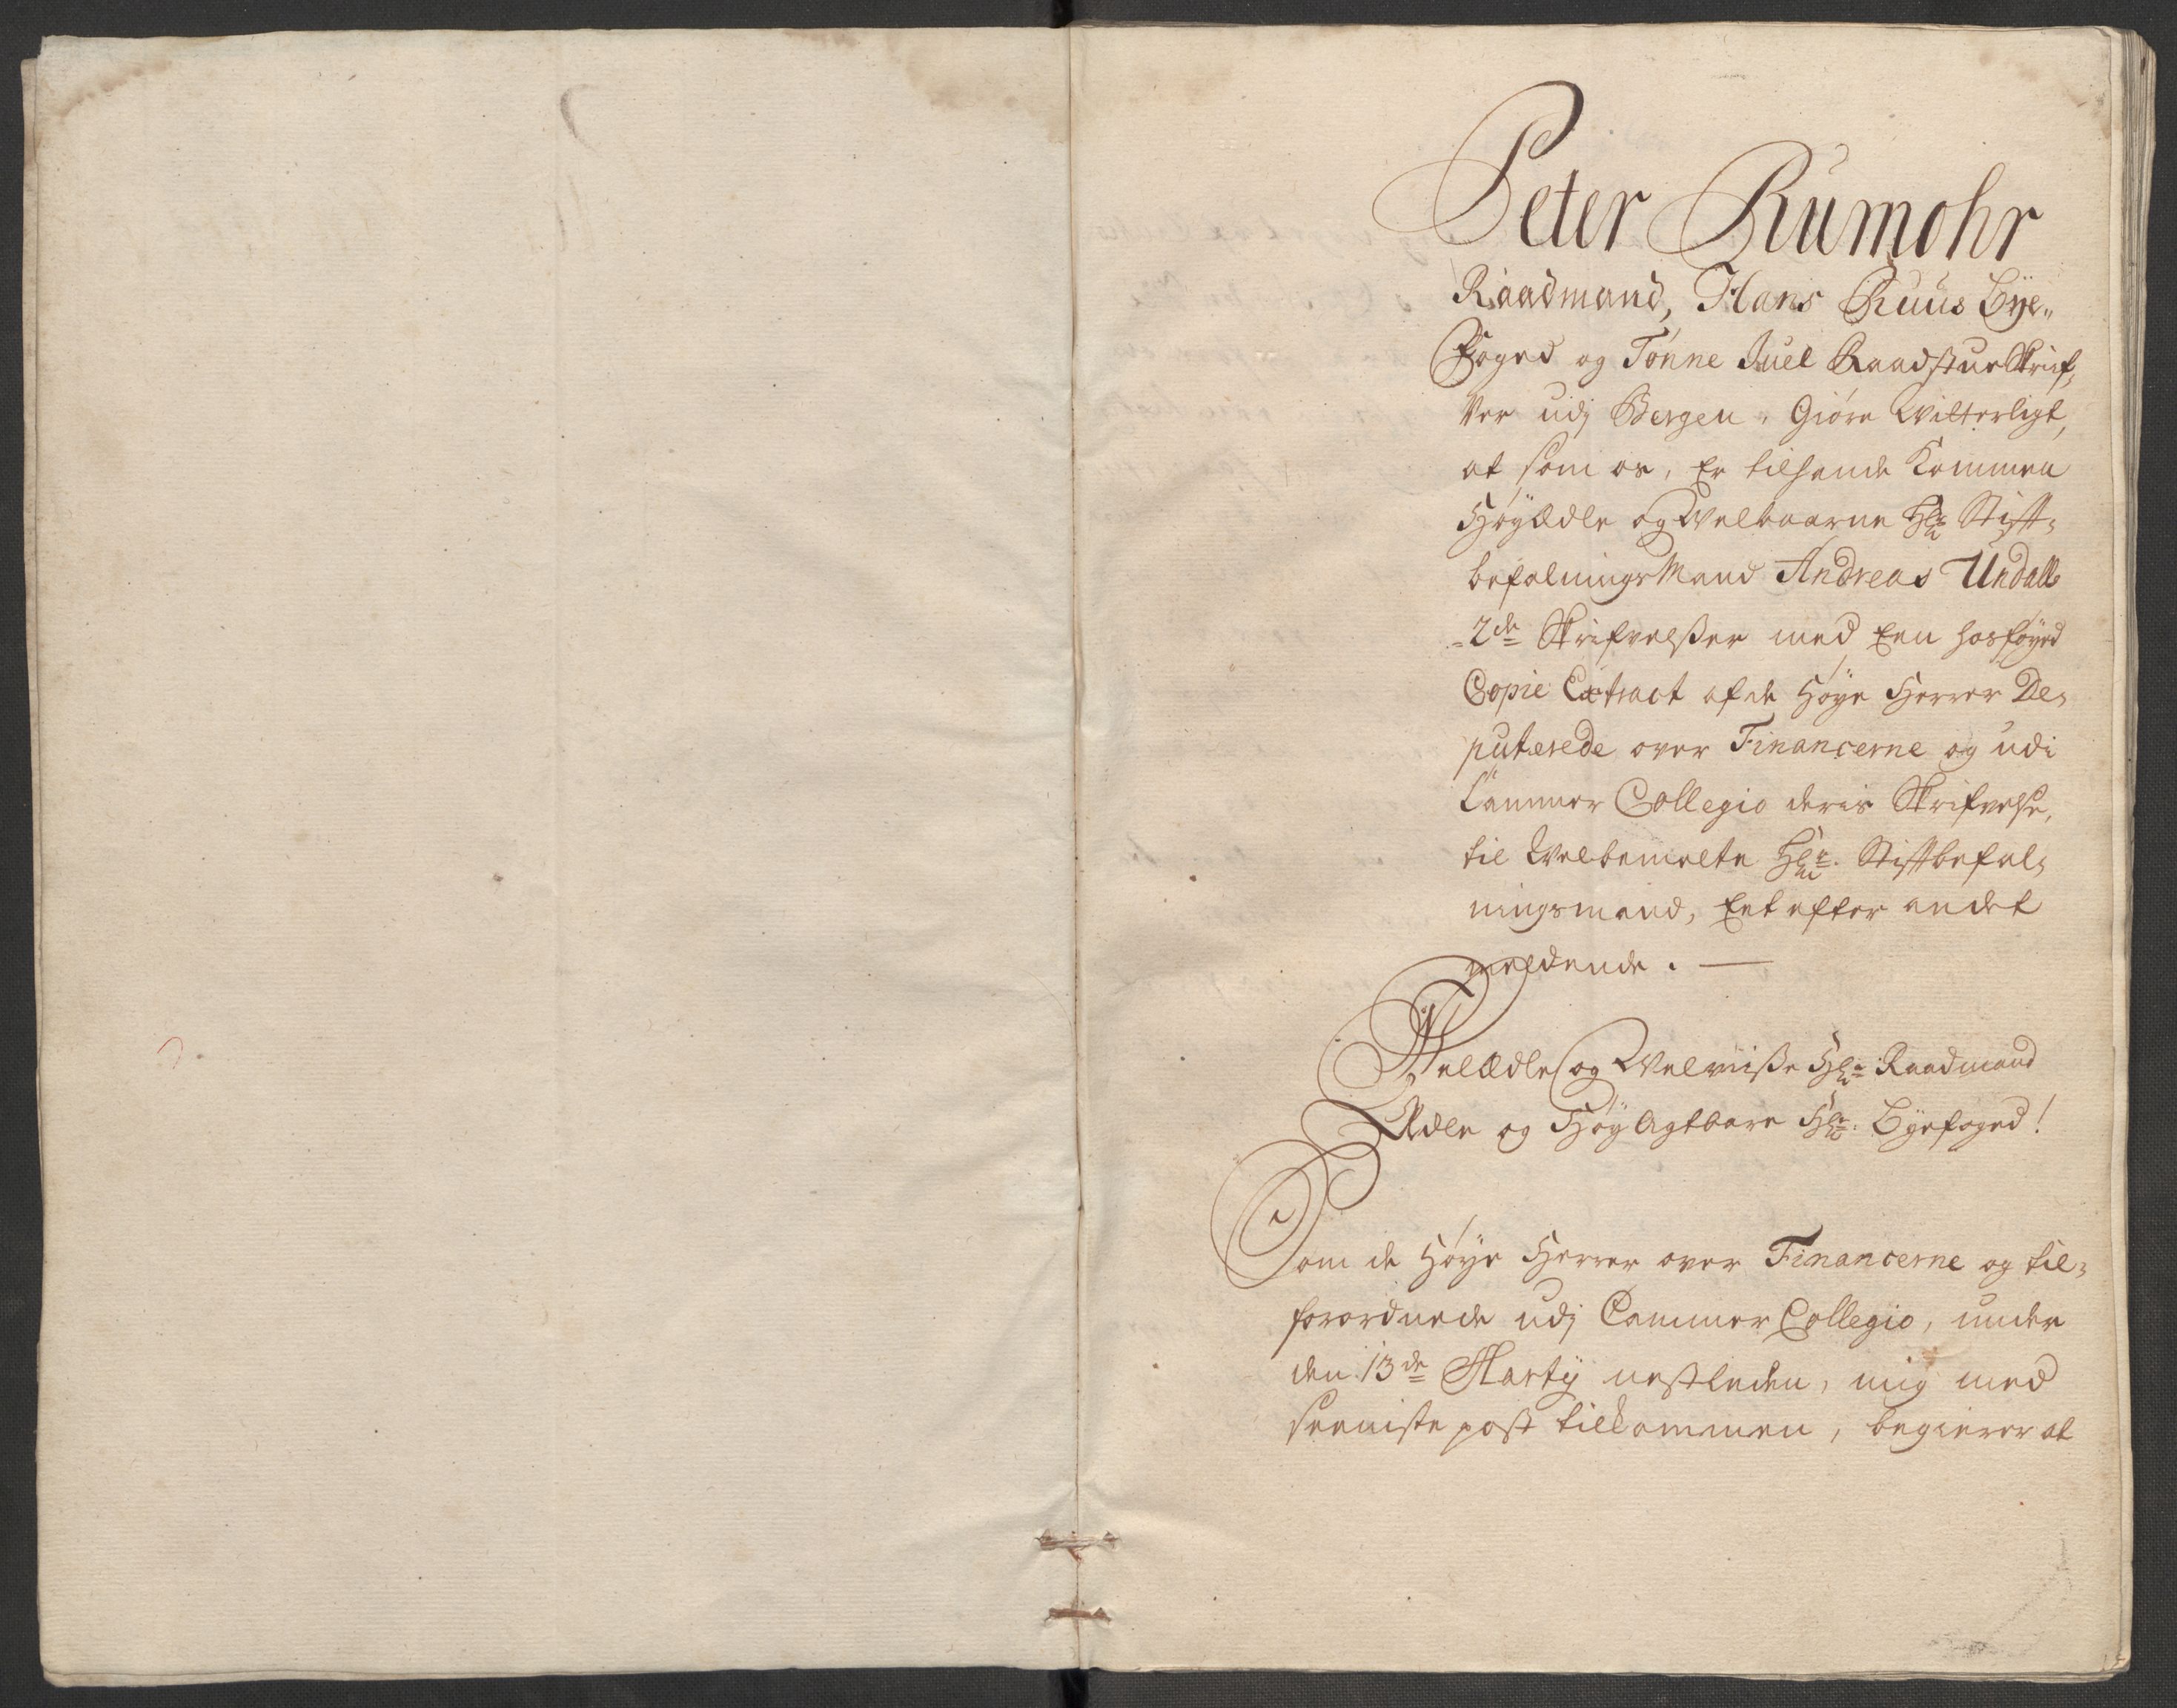 Peter Rumohr
Raadmand, Hans Ruus Bye„
Foged og Tønne Juel Raadstue Skrif„
ver udj Bergen, Giøre Witterligt,
at som os, Er tilhende Kommen
Høyædle og Welbaarne Hr Stift„
befalnings Mand Andreas Undall
2de Skrifvelßer med Een hosføyed
Copie Extract af de Høye Herrer De„
puterede over Financerne og udi
Cammer Collegio deris Skrifvelse,
til Welbemelte Hr. Stiftbefal„
ningsmand, Eet efter andet
meldende. —
Welædle og Welviiße Hr Raadmand
Ædle og HøyAgtbare Hr: Byefoged!
Som de Høye Herrer over Financerne og til„
forordnede udj Cammer Collegio, under
den 13de Martij nestleden, mig med
seeniste post tilkommen, begierer at